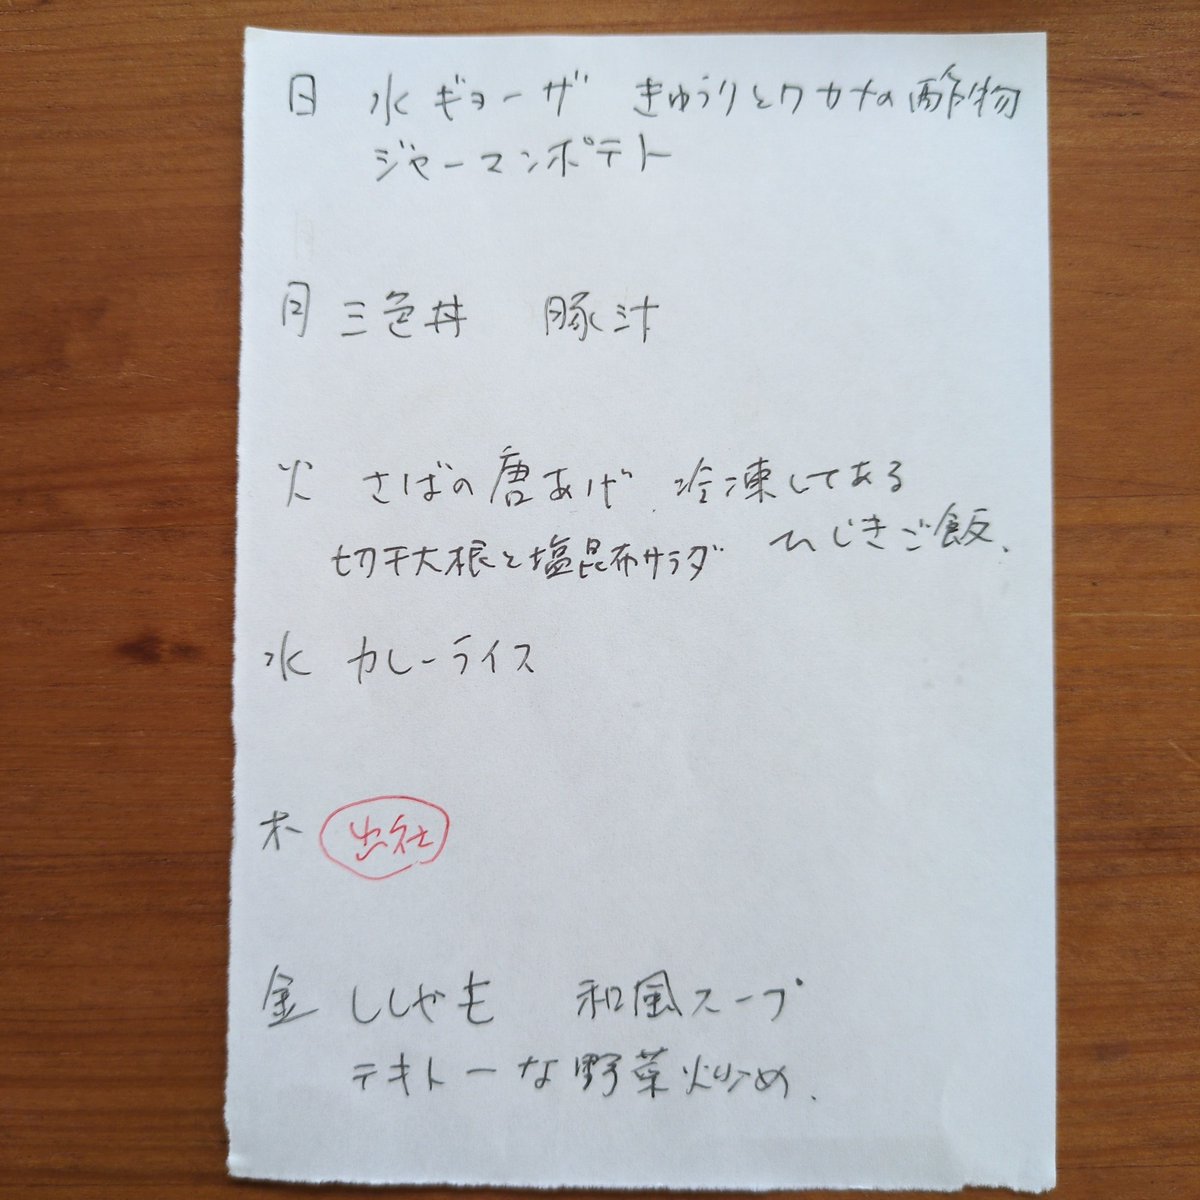 日 水ギョーザ きゅうりとワカメの酢物
ジャーマンポテト
月 三色丼 豚汁
火 さばの唐あげ 冷凍してある
ひじきご飯、
切干大根と塩昆布サラダ
水 カレーライス
木 出社
金 ししゃも 和風スープ
テキトーな野菜炒め、